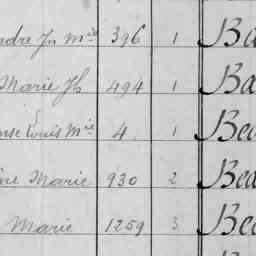 Jh mie 396 1 Ba
Marie Jh 494 1 Ba
Louis Mie 4 1 Bea
Marie 930 2 Bea
Marie 1259 3 Bea